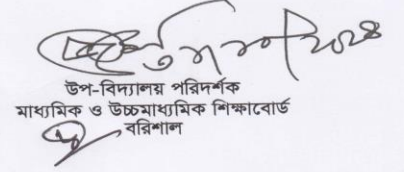 ২০২৪
উপ-বিদ্যালয় পরিদর্শক
মাধ্যমিক ও উচ্চমাধ্যমিক শিক্ষাবোর্ড
বরিশাল